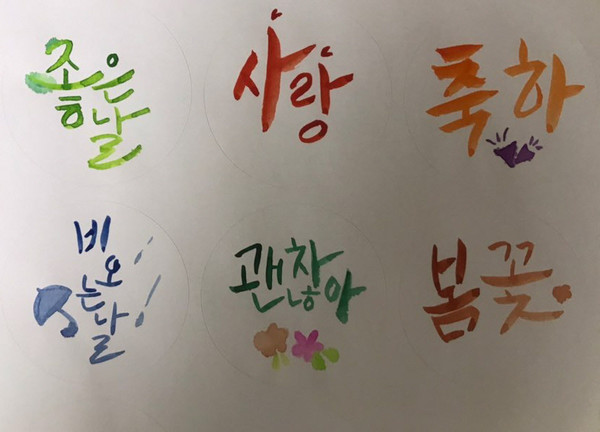 좋은
날
사
랑
축하
비
오
는
날
괜찮아
봄꽃